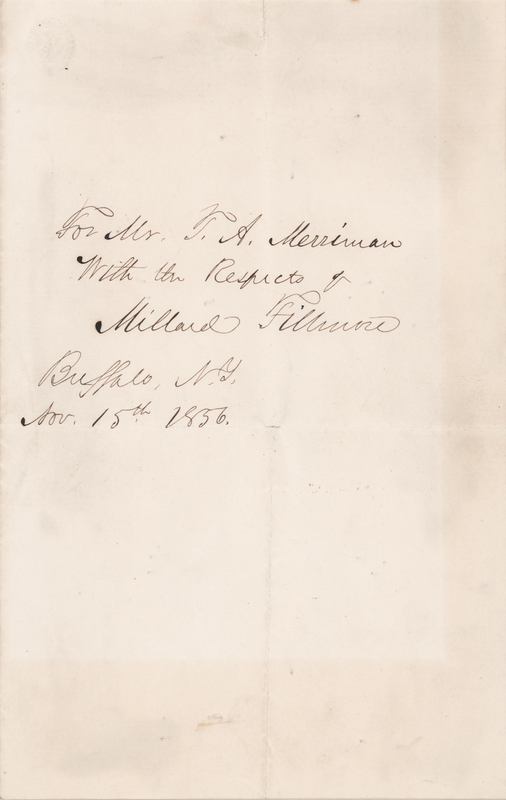 For Mr. T. A. Merriman
With the Respects of
Millard Fillmore
Buffalo, N.Y.
Nov. 15th 1856.